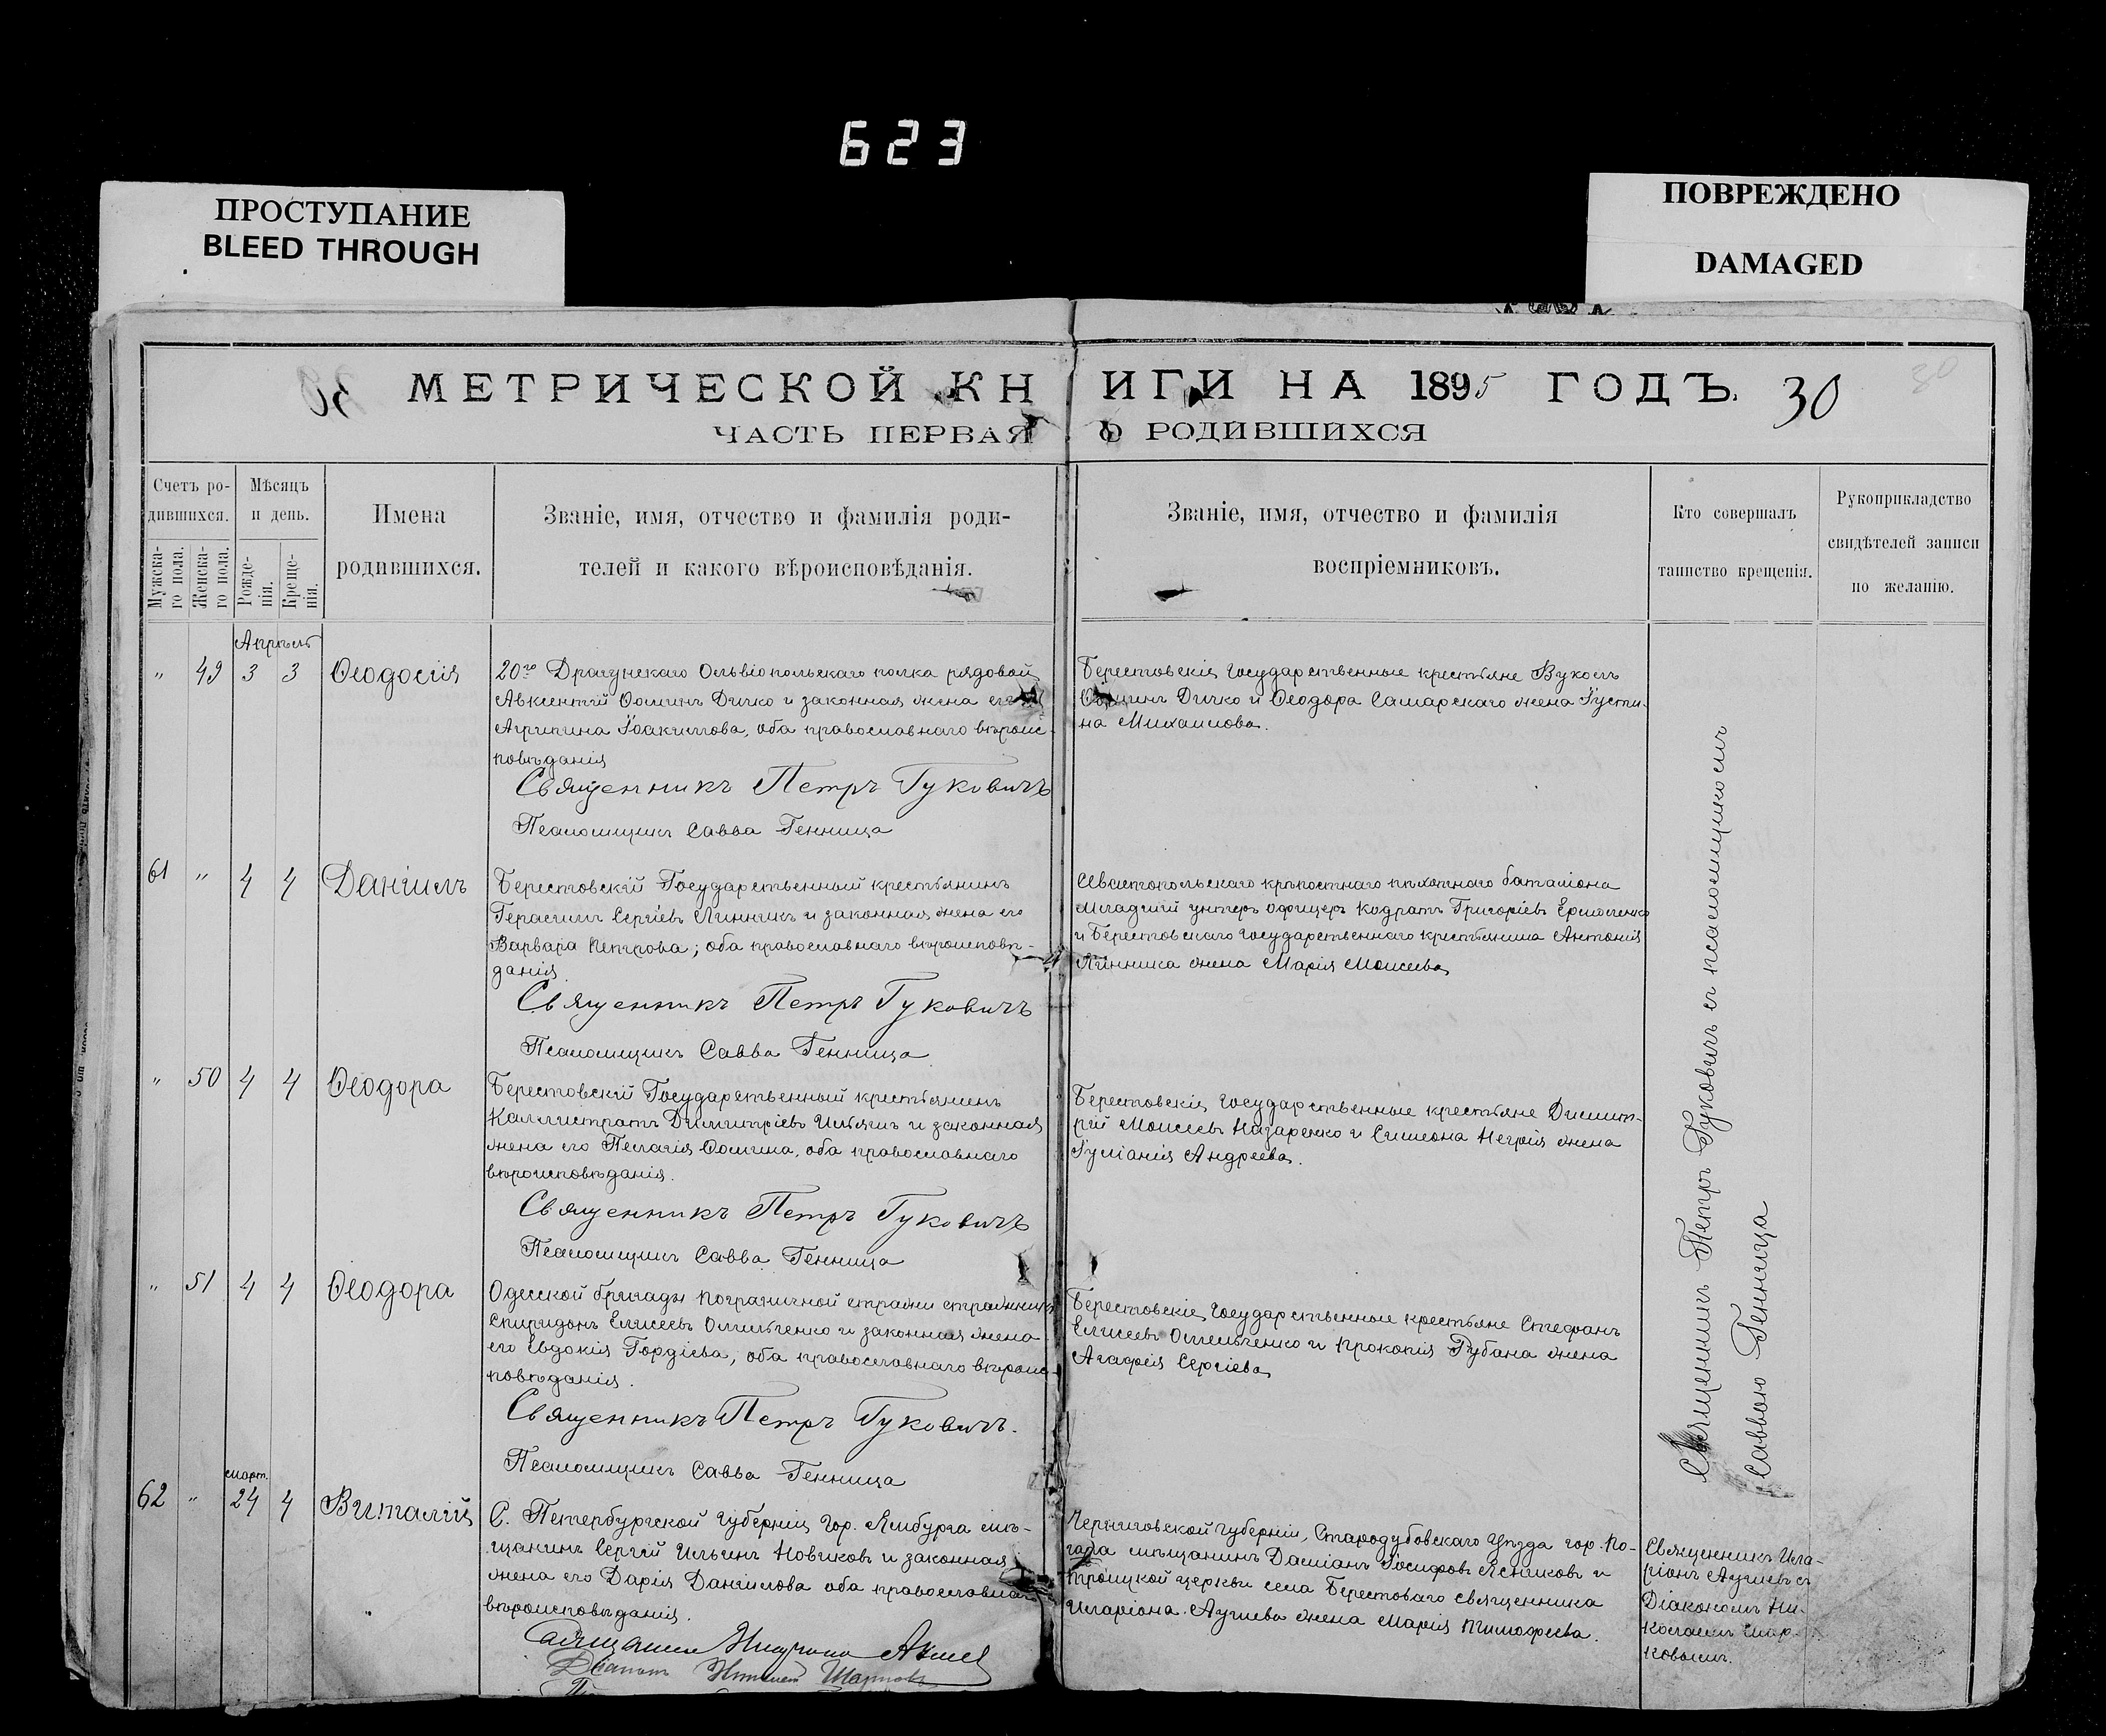 623
ПРОСТУПАНИЕ
BLEED THROUGH
ПОВРЕЖДЕНО
DAMAGED
МЕТРИЧЕСКОЙ КНИГИ НА 1895 ГОДЪ. 30
ЧАСТЬ ПЕРВАЯ О РОДИВШИХСЯ
Счетъ ро-
дившихся.
Мужска-
го пола.
Женска-
го пола.
Мѣсяцъ
и день.
Рожде-
нія.
Креще-
нія.
Имена
родившихся.
Званіе, имя, отчество и фамилія роди-
телей и какого вѣроисповѣданія.
Званіе, имя, отчество и фамилія
воспріемниковъ.
Кто совершалъ
таинство крещенія.
Рукоприкладство
свидѣтелей записи
по желанію.
Апрѣль
" 49 3 3 Ѳеодосія
20го Драгунскаго Ольвіопольскаго полка рядовой
Авксентій Ѳоминъ Дичко и законная жена его
Агрипина Іоакимова, оба православнаго вѣроис-
повѣданія
Священникъ Петръ Гуковичъ
Псаломщикъ Савва Генница
Берестовскіе Государственные крестьяне Вуколъ
Ѳоминъ Дичко и Ѳеодора Самарскаго жена Іусти-
на Михаилова.
61 " 4 4 Даніилъ
Берестовскій Государственный крестьянинъ
Герасимъ Сергіевъ Линникъ и законная жена его
Варвара Петрова; оба православнаго вѣроисповѣ-
данія
Священникъ Петръ Гуковичъ
Псаломщикъ Савва Генница
Севастопольскаго крѣпостнаго пѣхотнаго баталіона
Младшій унтеръ офицеръ Кодратъ Григоріевъ
и Берестовскаго Государственнаго крестьянина Антонія
Линника жена Марія Моисеева
" 50 4 4 Ѳеодора
Берестовскій Государственный крестьянинъ
Каллистратъ Димитріевъ Ильяшъ и законная
жена его Пелагія Ѳомина, оба православнаго
вѣроисповѣданія.
Священникъ Петръ Гуковичъ
Псаломщикъ Савва Генница
Берестовскіе Государственные крестьяне Димит-
рій Моисеевъ Назаренко и Симеона Негрія жена
Іуліанія Андреева.
" 51 4 4 Ѳеодора
Одесской бригады пограничной стражи стражникъ
Спиридонъ Елисеевъ Омельченко и законная жена
его Евдокія Гордіева, оба православнаго вѣроис-
повѣданія.
Священникъ Петръ Гуковичъ.
Псаломщикъ Савва Генница
Берестовскіе Государственные крестьяне Стефанъ
Елисеевъ Омельченко и Прокопія Рубана жена
Агафія Сергіева
Священникъ Петръ Гуковичъ съ псаломщикомъ
Саввою Генница
март.
62 " 24 4 Виталій
С. Петербургской губерніи гор. Ямбурга мѣ-
щанинъ Сергій Ильинъ Новиковъ и законная
жена его Дарія Даніилова оба православнаго
вѣроисповѣданія.
Священникъ Иларіонъ
Діаконъ Николай
Черниговской губерніи, Стародубовскаго Уѣзда гор. По-
гара мѣщанинъ Даміанъ Іосифовъ и
Троицкой церкви села Берестоваго священника
Иларіона жена Марія Тимофеева.
Священникъ Ила-
ріонъ съ
Діакономъ Ни-
колаемъ Шар-
ковымъ.